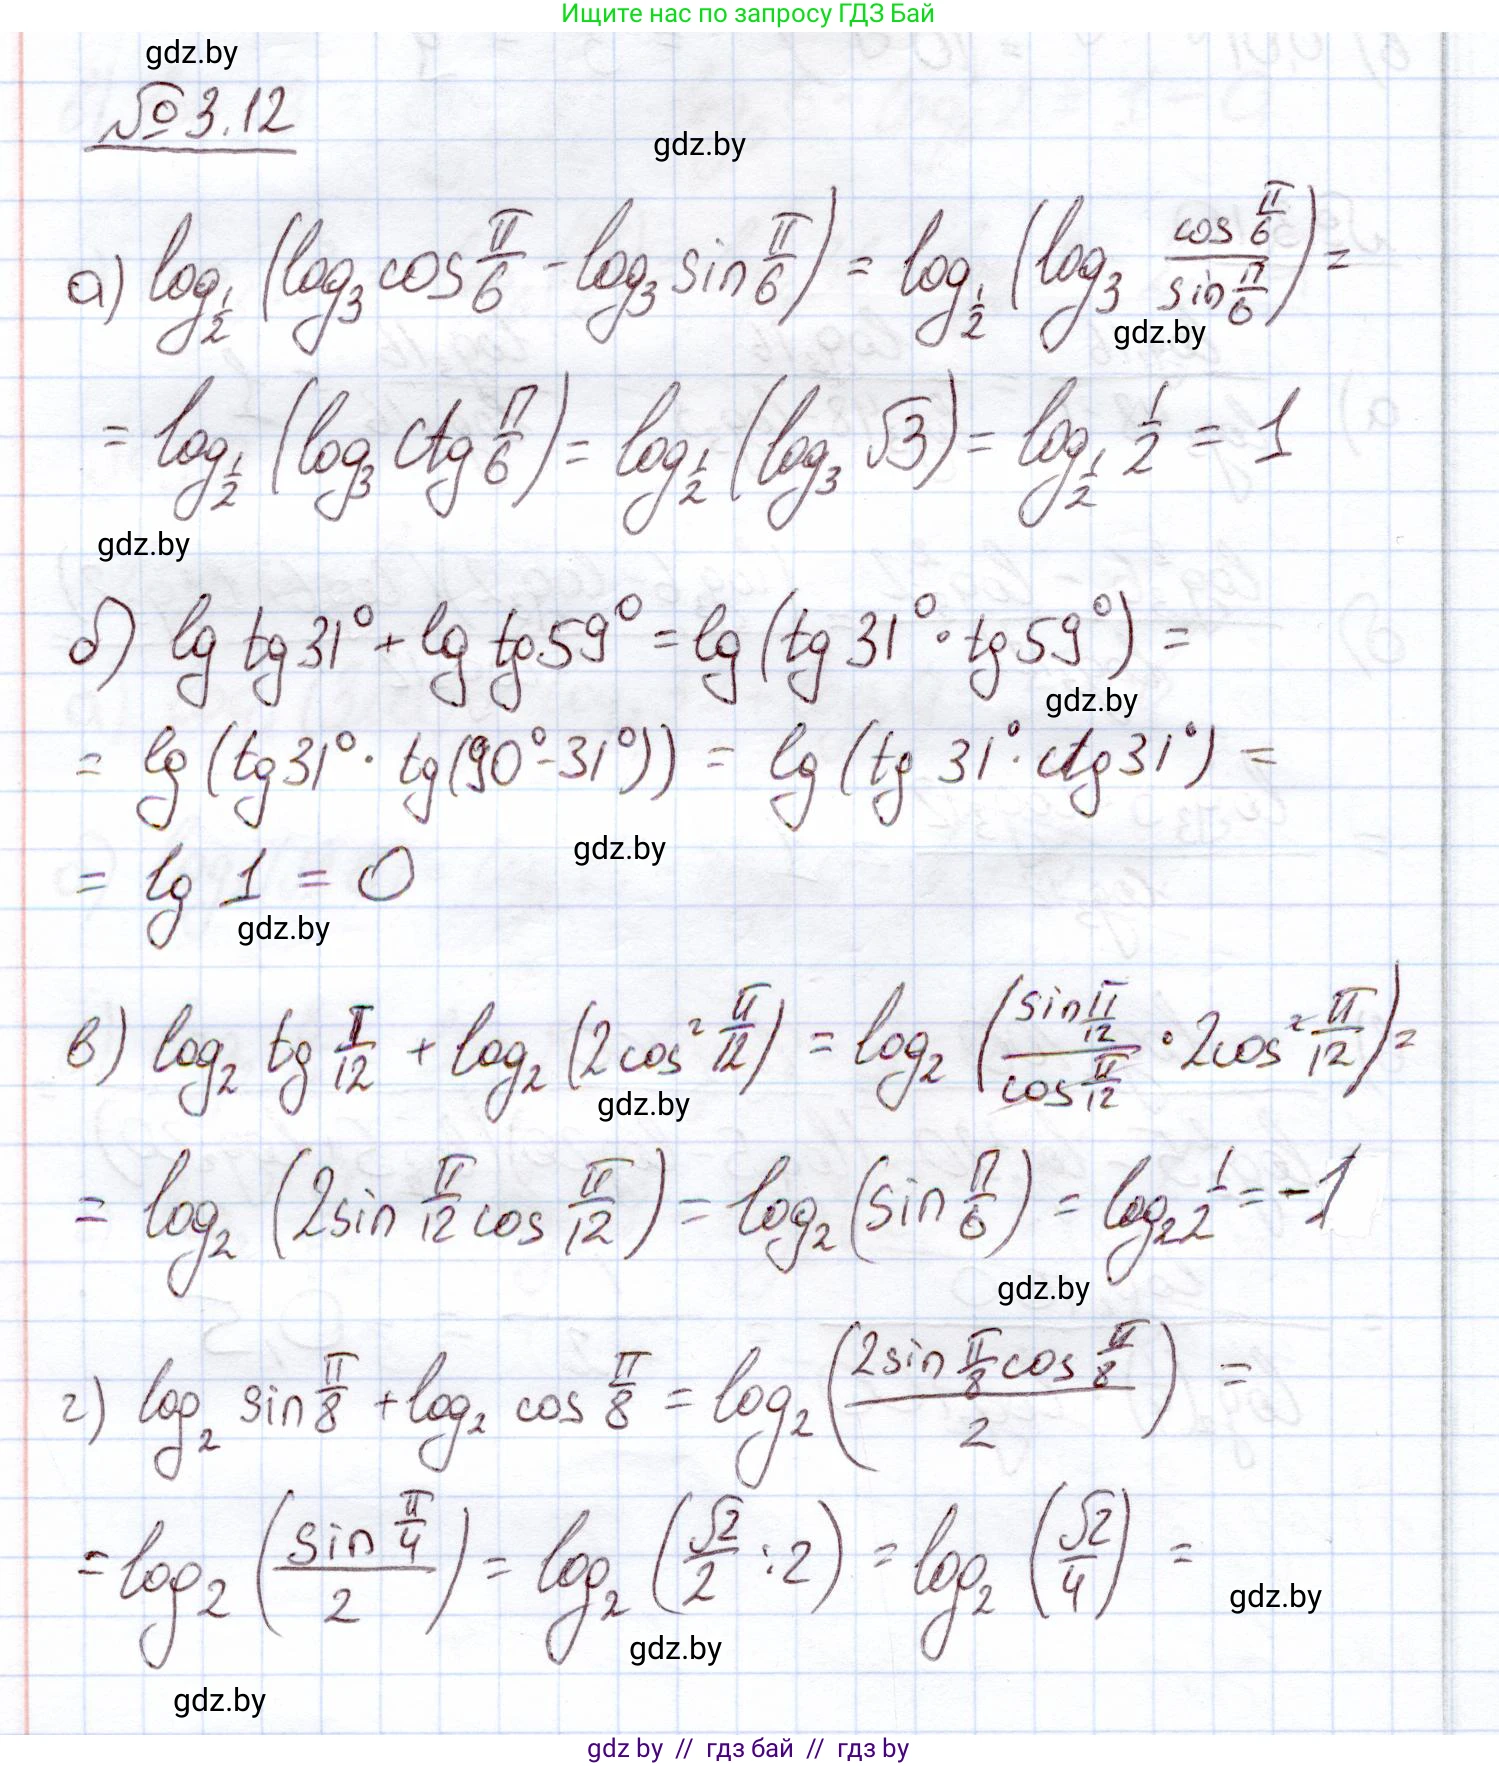 Ищите нас по запросу ГДЗ Бай
gdz.by
№ 3.12
gdz.by
а) log_{1/2} (log_3 cos π/6 - log_3 sin π/6) = log_{1/2} (log_3 (cos π/6)/(sin π/6)) =
gdz.by
= log_{1/2} (log_3 ctg π/6) = log_{1/2} (log_3 √3) = log_{1/2} 1/2 = 1
gdz.by
б) lg tg 31° + lg tg 59° = lg (tg 31° · tg 59°) =
gdz.by
= lg (tg 31° · tg (90° - 31°)) = lg (tg 31° · ctg 31°) =
gdz.by
= lg 1 = 0
gdz.by
в) log_2 tg π/12 + log_2 (2cos² π/12) = log_2 ((sin π/12)/(cos π/12) · 2cos² π/12) =
gdz.by
= log_2 (2sin π/12 cos π/12) = log_2 (sin π/6) = log_2 1/2 = -1
gdz.by
г) log_2 sin π/8 + log_2 cos π/8 = log_2 ((2sin π/8 cos π/8)/2) =
= log_2 ((sin π/4)/2) = log_2 (√2/2 : 2) = log_2 (√2/4) =
gdz.by
gdz.by
gdz.by
gdz by // гдз бай // гдз by